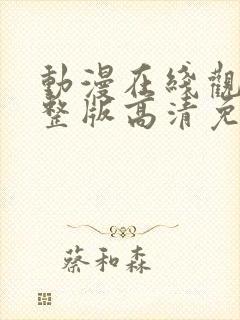 動漫在綫觀
整版高清免
蔡和森